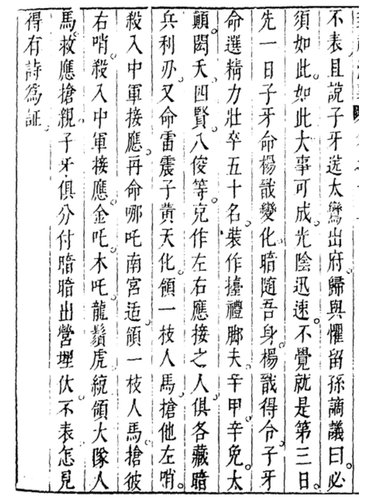 不表且說子牙送太鸞出府歸與懼留孫謫議曰必
須如此如此大事可成光陰迅速不覺就是第三日
先一日子牙命楊戩變化暗隨吾身楊戩得令子牙
命選精力壯卒五十名裝作擡禮脚夫辛甲辛免太
顛閎夭四賢八俊等充作左右應接之人俱各藏暗
兵利刃又命雷震子黃天化領一枝人馬搶他左哨
殺入中軍接應再命哪吒南宮适領一枝人馬搶彼
右哨殺入中軍接應金吒木吒龍鬚虎統領大隊人
馬救應搶親子牙俱分付暗暗出營埋伏不表怎見
得有詩爲証